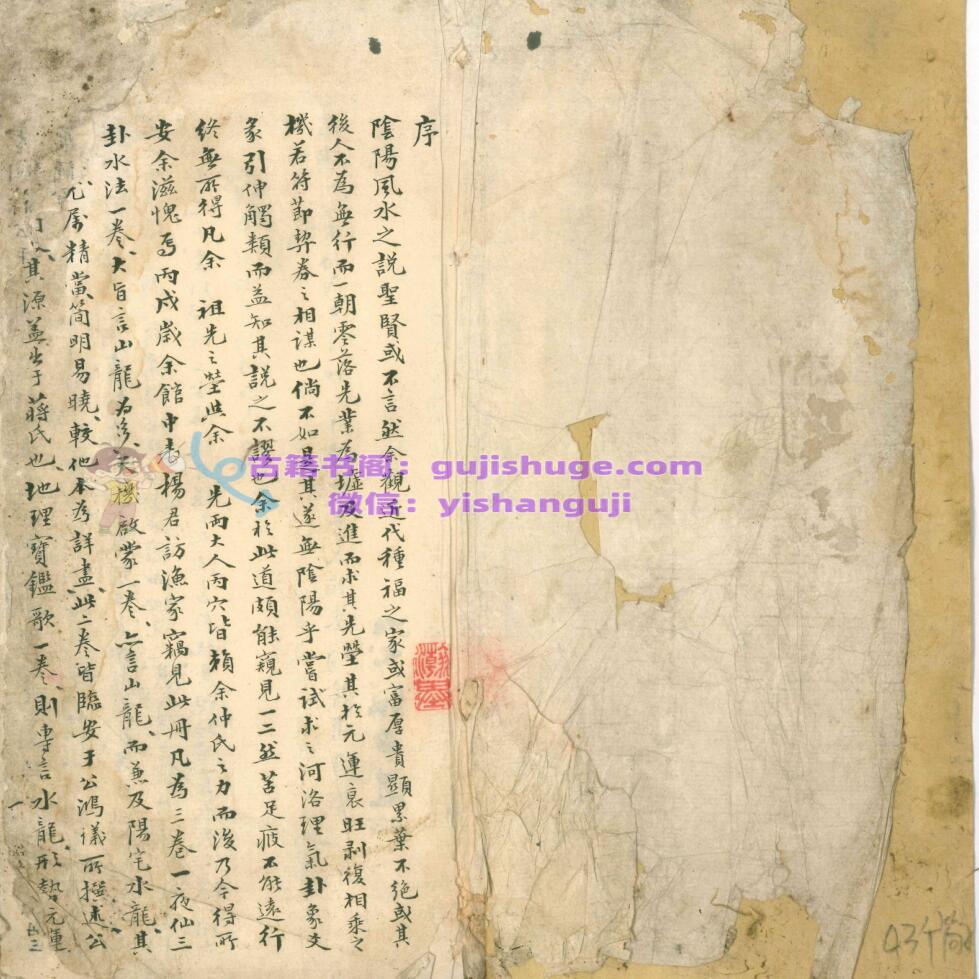 序
陰陽風水之説聖賢或不言然余觀近代種福之家或富厚貴顯累葉不絶或其
後人不為無行而一朝零落先業為墟及進而求其先塋其於元運衰旺剥復相乘之
機若符節契券之相謀也倘不如是其遂無陰陽乎嘗試求之河洛理氣卦象爻
彖引伸觸類而益知其説之不謬也余於此道頗能窺見一二然苦足疲不能遠行
終無所得凡余祖先之塋與余先両大人丙穴皆賴余仲氏之力而後乃今得所
安余滋愧焉丙戌歲余館中表楊君訪漁家竊見此册凡為三卷一夜仙三
卦水法一卷大旨言山龍為機啟蒙一卷言山龍而兼及陽宅水龍其
屬精當簡明易曉較他本為詳盡此二卷皆臨安于公鴻儀所撰述公
其源蓋出于蔣氏也地理寶鑑歌一卷則專言水龍形勢元運
一
瀚墨
古籍书阁：gujishuge.com
微信：yishanguji